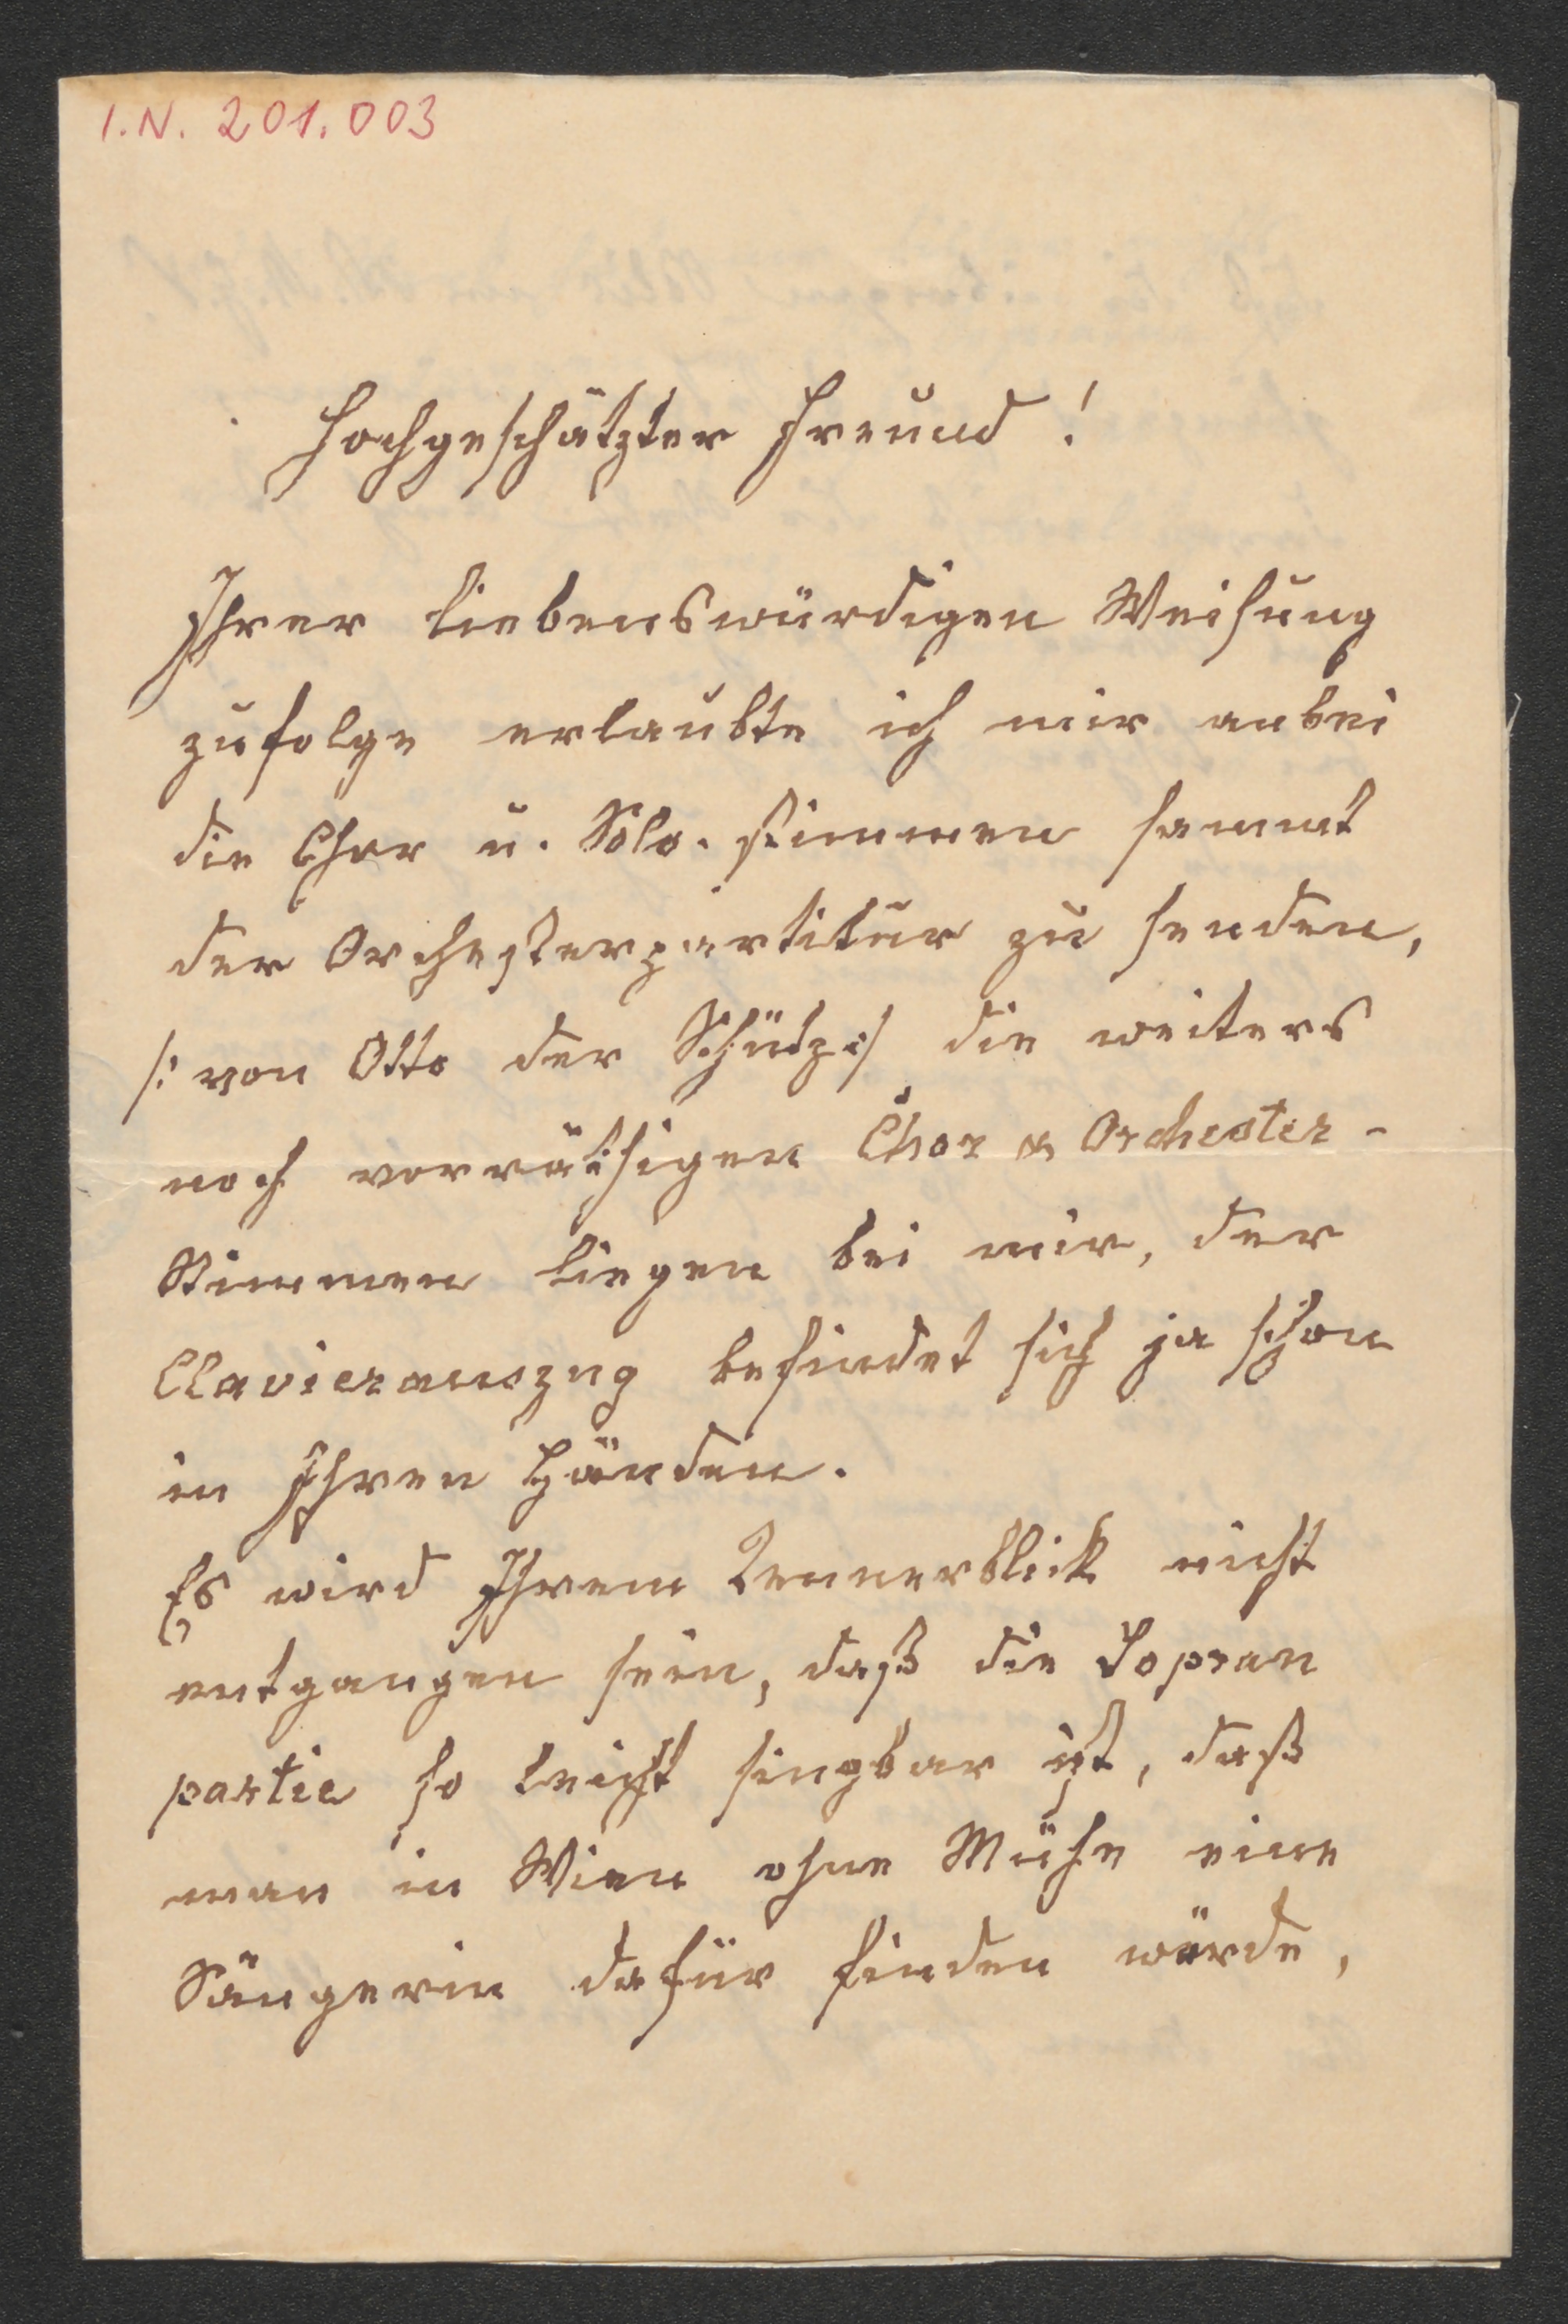 I.N. 201.003
Hochgeschätzter Freund!
Ihrer liebenswürdigen Weisung
zufolge erlaubte ich mir anbei
die Chor u. Solo-stimmen sammt
der Orchesterpartitur zu senden,
/: von Otto der Schütz :/ die weiters
noch vorräthigen Chor & Orchester-
Stimmen liegen bei mir, der
Clavierauszug befindet sich ja schon
in Ihren Händen.
Es wird Ihrem Kennerblick nicht
entgangen sein, daß die Sopran
partie so leicht singbar ist, daß
man in Wien ohne Mühe eine
Sängerin dafür finden würde,